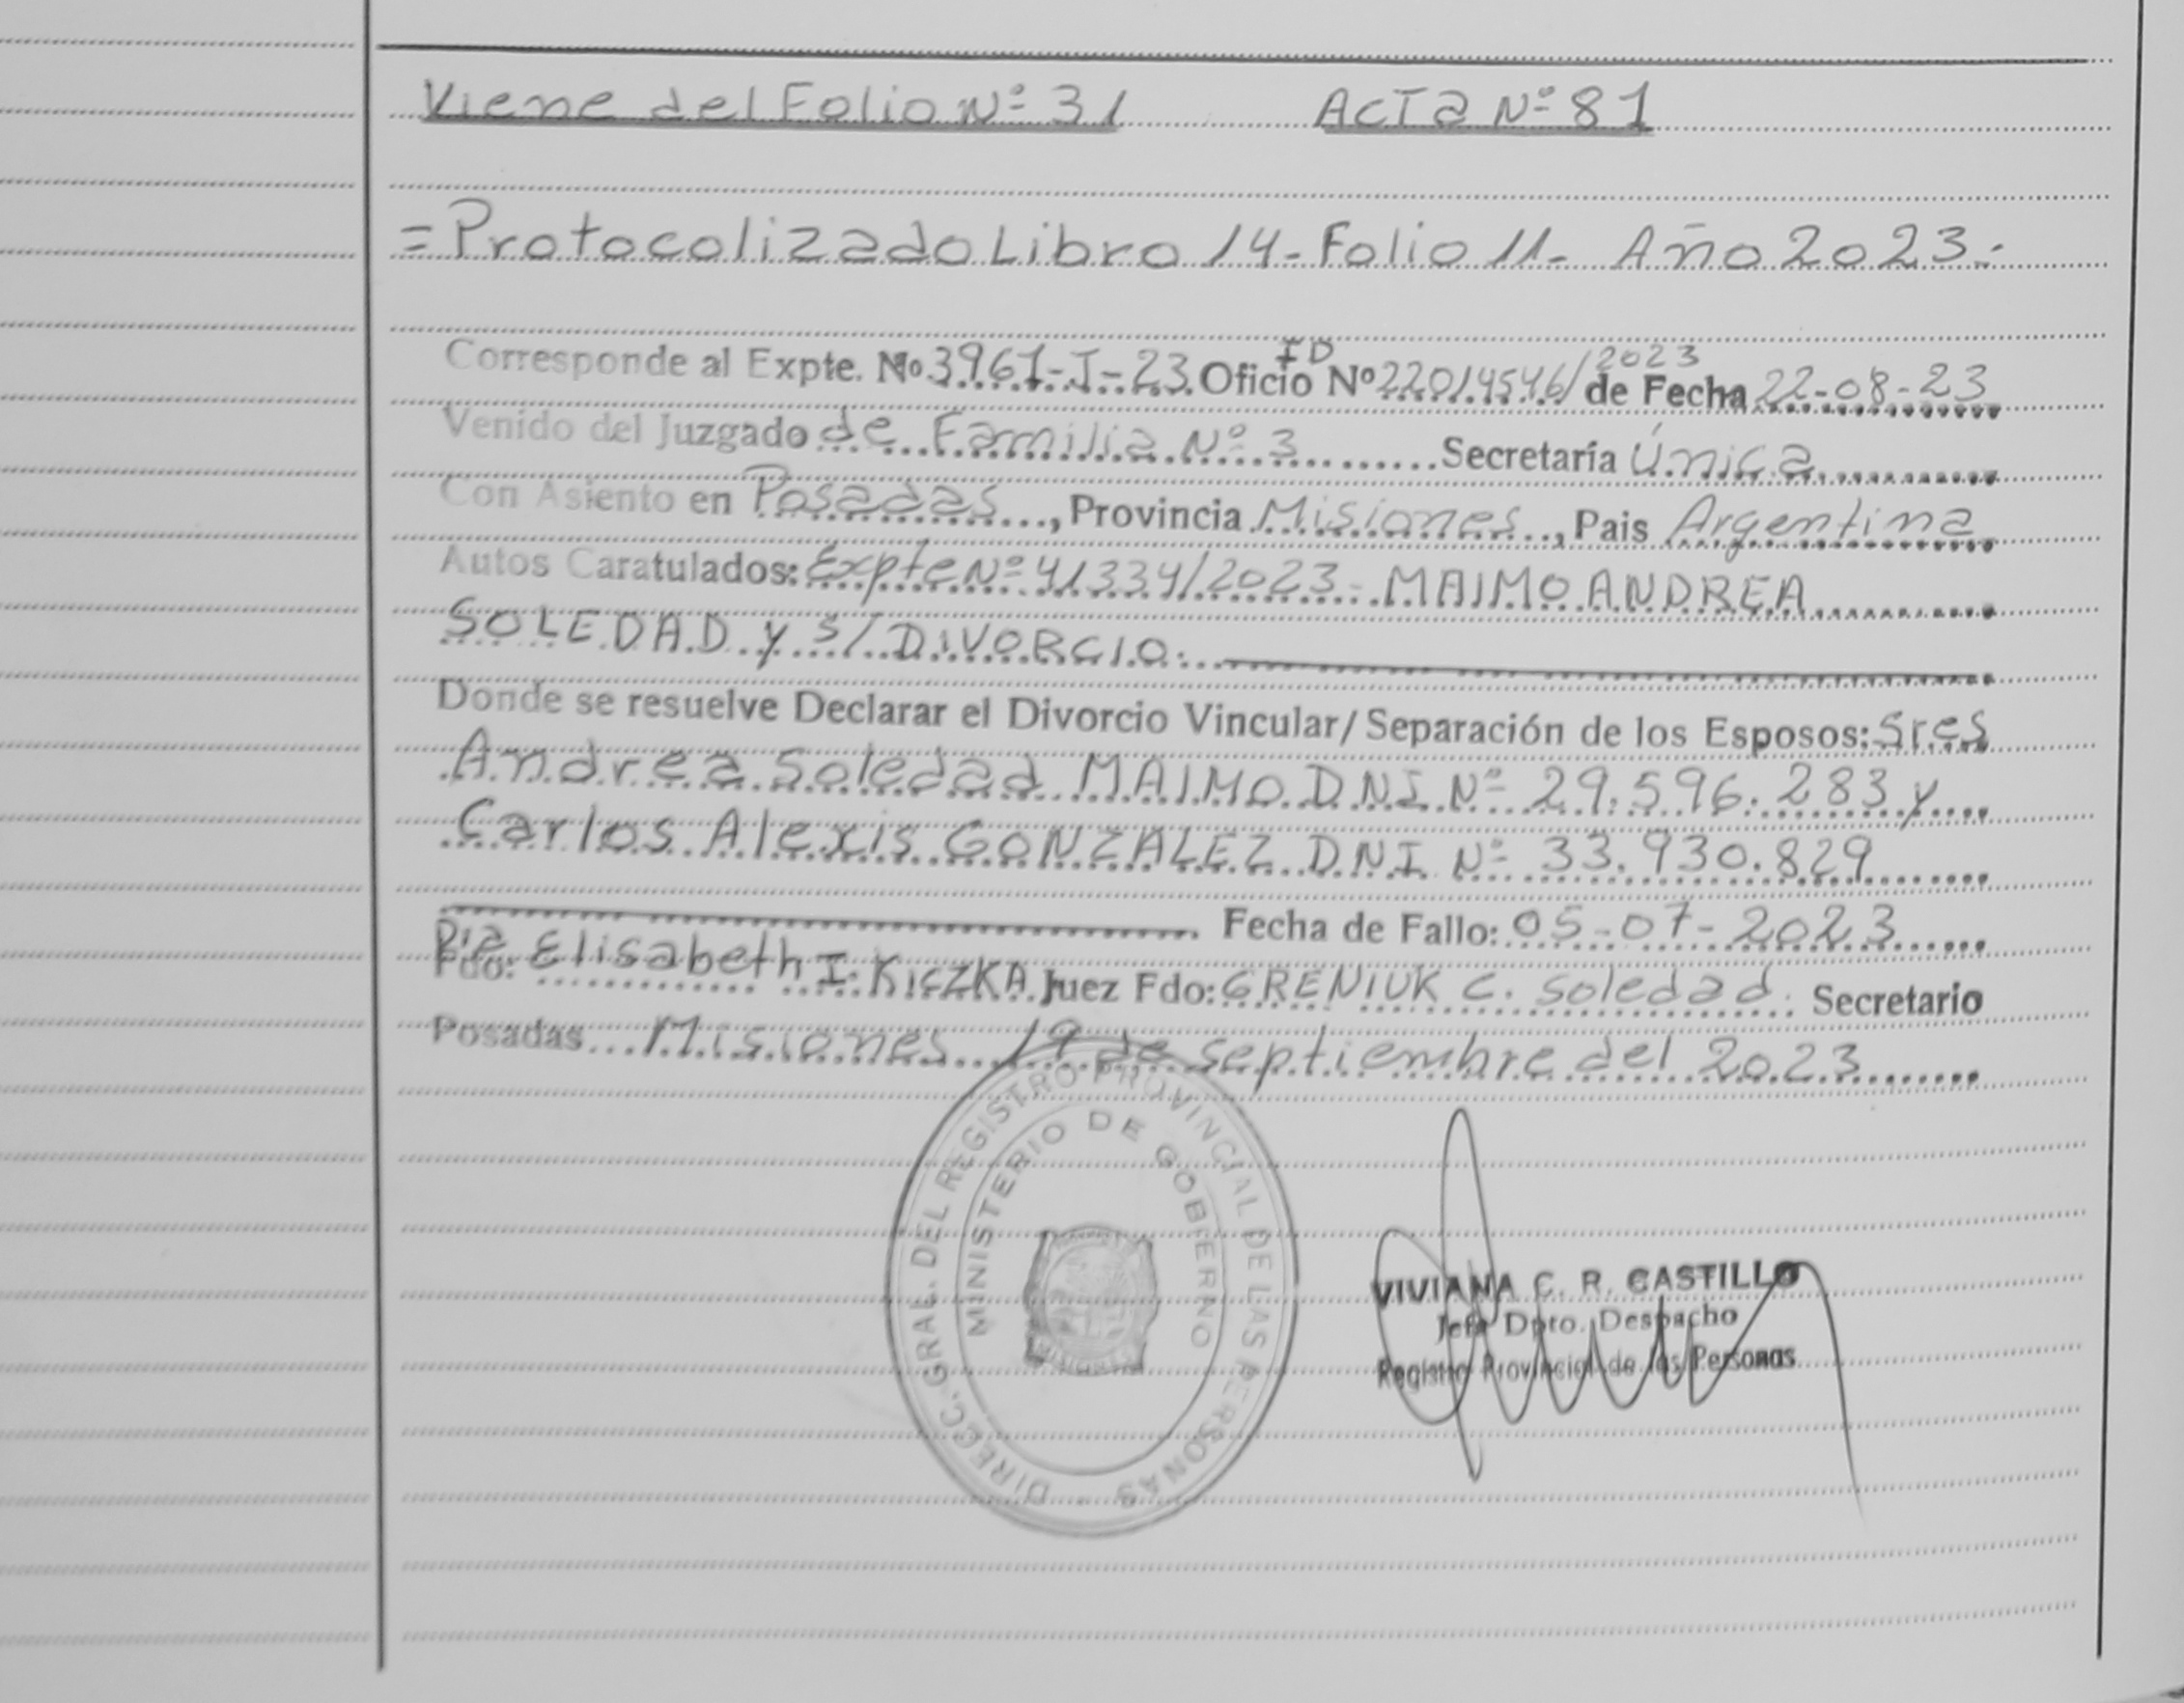 Viene del Folio Nº 31 ACTa Nº 81
= Protocolizado Libro 14 - Folio 11 - Año 2023.-
Corresponde al Expte. No 3961-J-23 Oficio ID Nº 22014546/2023 de Fecha 22-08-23
Venido del Juzgado de Familia Nº 3 Secretaría Única
Con Asiento en Posadas, Provincia Misiones, Pais Argentina
Autos Caratulados: Expte Nº 41334/2023 - MAIMO ANDREA
SOLEDAD y S/ DIVORCIO.
Donde se resuelve Declarar el Divorcio Vincular/ Separación de los Esposos: Sres
Andrea Soledad MAIMO DNI Nº 29.596.283 y
Carlos Alexis GONZALEZ DNI Nº 33.930.829
Fecha de Fallo: 05-07-2023
Fdo: Dra Elisabeth I. KICZKA Juez Fdo: GRENIUK C. Soledad. Secretario
Posadas Misiones 19 de Septiembre del 2023
DIREC. GRAL. DEL REGISTRO PROVINCIAL DE LAS PERSONAS
MINISTERIO DE GOBIERNO
VIVIANA C. R. CASTILLO
Jefa Dpto. Despacho
Registro Provincial de las Personas